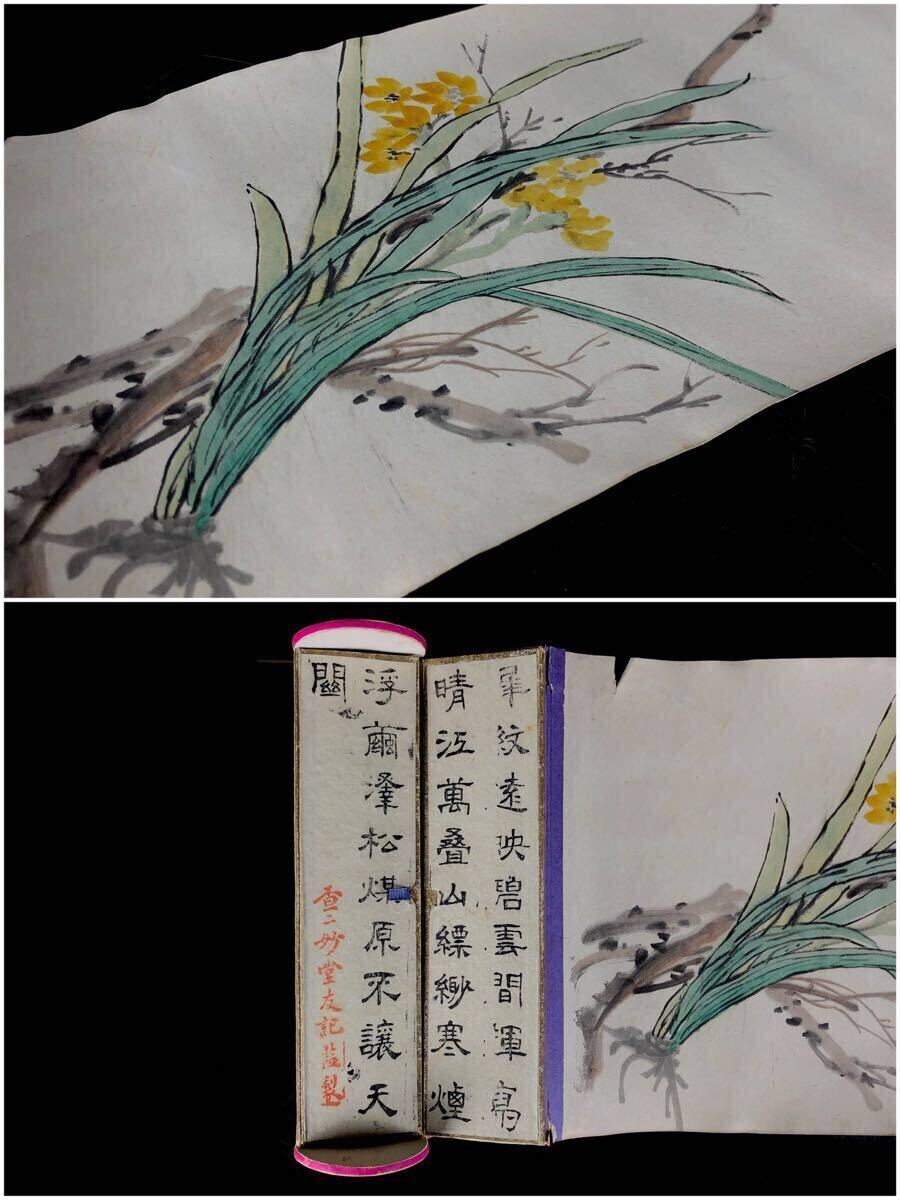 犀紋遠映碧雲間渾寫
晴江萬叠山縹緲寒煙
浮繭澤松煤原不讓天
關
查二妙堂友記監製